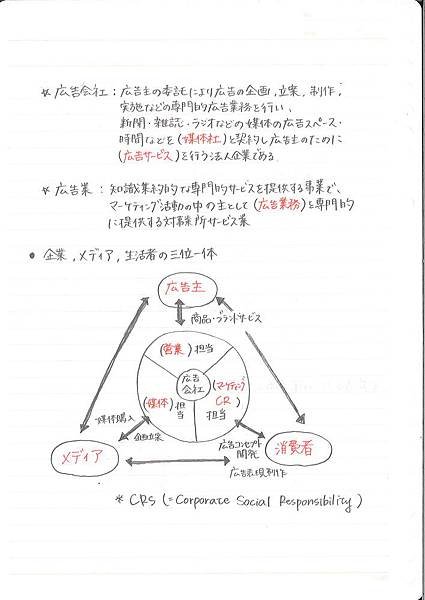 ☆ 広告会社：広告主の委託により広告の企画，立案，制作，
実施などの専門的広告業務を行い、
新聞・雑誌・ラジオなどの媒体の広告スペース・
時間などを（媒体社）と契約し広告主のために
（広告サービス）を行う法人企業である
☆ 広告業：知識集約的な専門的サービスを提供する事業で、
マーケティング活動の中の主として（広告業務）を専門的
に提供する対事業所サービス業
● 企業，メディア，生活者の三位一体
広告主
商品・ブランドサービス
（営業）担当
広告
会社
（媒体）担当
（マーケティング
CR）
担当
媒体購入
企画立案
広告コンセプト
開発
広告表現制作
メディア
消費者
* CRS (=Corporate Social Responsibility)